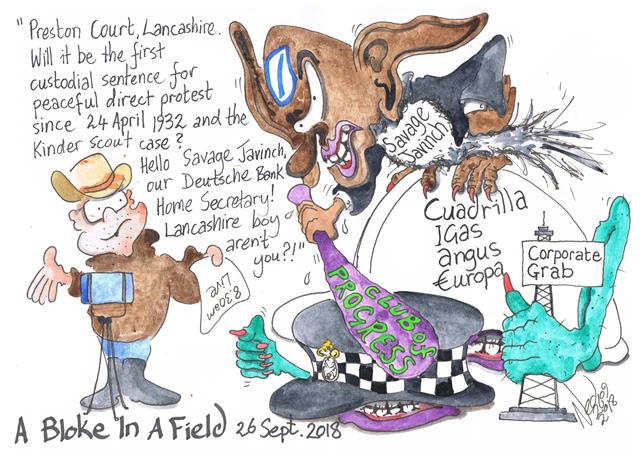 "Preston Court, Lancashire.
Will it be the first
custodial sentence for
peaceful direct protest
since 24 April 1932 and the
Kinder scout case?
Hello Savage Javinch,
our Deutsche Bank
Home Secretary!
Lancashire boy
aren't
you?!"
Savage
Javinch
Cuadrilla
IGas
angus
€uropa
Corporate
Grab
CLUB OF
PROGRESS
Live
8:30am
A Bloke In A Field 26 Sept. 2018